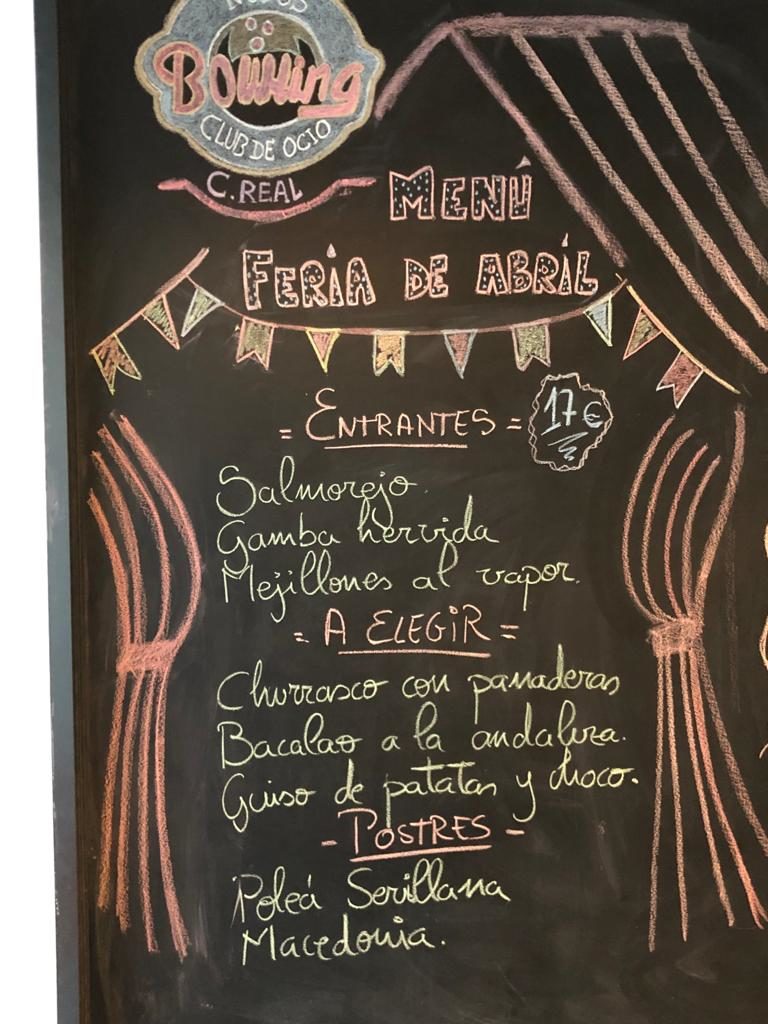 Bowling
CLUB DE OCIO
C. REAL
MENÚ
FERIA DE ABRIL
= ENTRANTES =
17€
Salmorejo.
Gamba hervida
Mejillones al vapor.
= A ELEGIR =
Churrasco con panaderas
Bacalao a la andaluza.
Guiso de patatas y choco.
- POSTRES -
Poleá Sevillana
Macedonia.